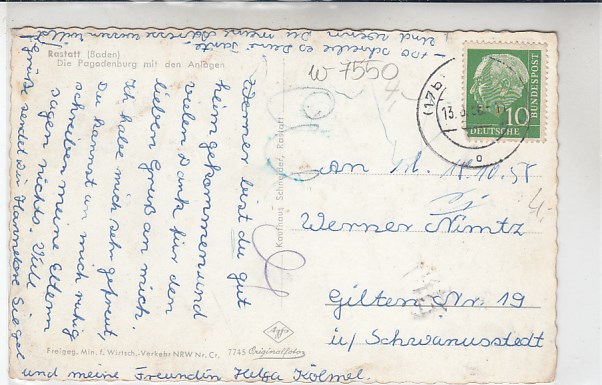 Rastatt (Baden)
Die Pagodenburg mit den Anlagen
W-7550
Werner bist du gut
heim gekommen und
vielen Dank für den
lieben Gruß an mich.
Ich habe mich sehr gefreut,
Du kannst an mich ruhig
schreiben meine Eltern
sagen nichts. Viele
Grüße sendet Dir Hannelore Siegel
und meine Freundin Helga Kölmel.
und wenn Du meine Adresse wissen willst
so schreibe es Deine Tante
Kaufhaus Schneider, Rastatt
(17b)
13.
DEUTSCHE
BUNDESPOST
10
An
10.57
4.-
Werner Nimtz
Gilten Nr. 19
ü/ Schwarmstedt
Agfa
Freigeg. Min. f. Wirtsch.-Verkehr NRW Nr. Cr. 7745 Originalfoto